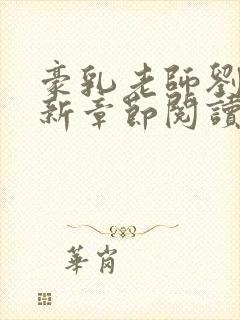 豪乳老師劉
新章節閱讀
華肖